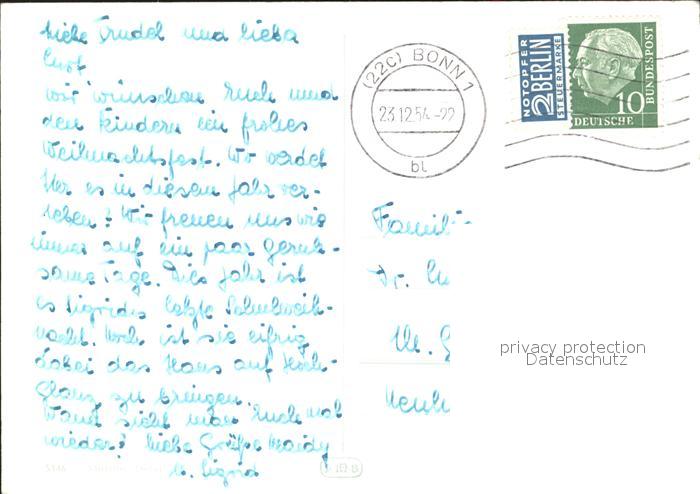 Liebe Trudel und lieber
Curt
wir wünschen Euch und
den Kindern ein frohes
Weihnachtsfest. Wo werdet
Ihr es in diesem Jahr ver-
leben? Wir freuen uns wie
immer auf ein paar geruh-
same Tage. Dies Jahr ist
es Sigrids letzte Schulweih-
nacht. Noch ist sie eifrig
dabei das Haus auf Hoch-
glanz zu bringen.
Wann sieht man Euch mal
wieder? Liebe Grüße
u. Sigrid
(22c) BONN 1
23.12.54.-22
bl
NOTOPFER
2 BERLIN
STEUERMARKE
10
DEUTSCHE
BUNDESPOST
Famil
Dr.
privacy protection
Datenschutz